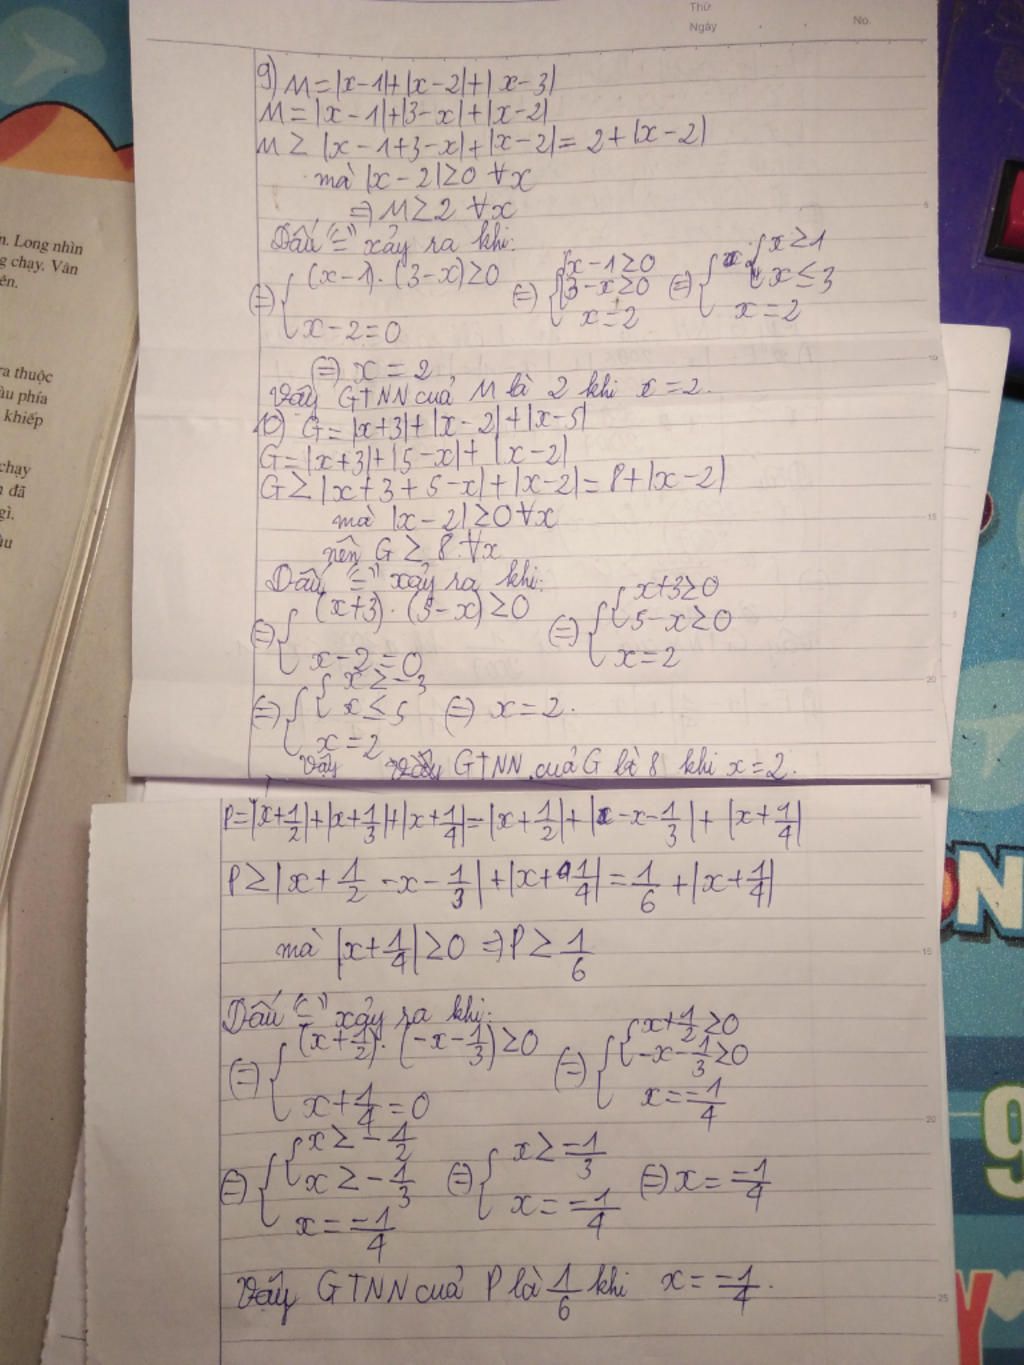 Thứ
Ngày
No.
9) M = |x-1|+|x-2|+|x-3|
M = |x-1|+|3-x|+|x-2|
M ≥ |x-1+3-x|+|x-2| = 2+|x-2|
mà |x-2| ≥ 0 ∀x
⇒ M ≥ 2 ∀x
Dấu "=" xảy ra khi:
⇔ { (x-1).(3-x) ≥ 0 ⇔ { { x-1 ≥ 0 ⇔ { { x ≥ 1
3-x ≥ 0 x ≤ 3
x-2 = 0 x = 2 x = 2
⇔ x = 2
Vậy GTNN của M là 2 khi x = 2.
10) G = |x+3|+|x-2|+|x-5|
G = |x+3|+|5-x|+|x-2|
G ≥ |x+3+5-x|+|x-2| = 8+|x-2|
mà |x-2| ≥ 0 ∀x
nên G ≥ 8 ∀x
Dấu "=" xảy ra khi:
⇔ { (x+3).(5-x) ≥ 0 ⇔ { { x+3 ≥ 0
5-x ≥ 0
x-2 = 0 x = 2
⇔ { { x ≥ -3
x ≤ 5 ⇔ x = 2.
x = 2
Vậy GTNN của G là 8 khi x = 2.
P = |x+1/2|+|x+1/3|+|x+1/4| = |x+1/2|+|-x-1/3|+|x+1/4|
P ≥ |x+1/2-x-1/3|+|x+1/4| = 1/6+|x+1/4|
mà |x+1/4| ≥ 0 ⇒ P ≥ 1/6
Dấu "=" xảy ra khi:
⇔ { (x+1/2).(-x-1/3) ≥ 0 ⇔ { { x+1/2 ≥ 0
-x-1/3 ≥ 0
x+1/4 = 0 x = -1/4
⇔ { { x ≥ -1/2 ⇔ { x ≥ -1/3 ⇔ x = -1/4
x ≥ -1/3
x = -1/4 x = -1/4
Vậy GTNN của P là 1/6 khi x = -1/4.
n. Long nhìn
g chạy. Vân
ên.
ra thuộc
àu phía
khiếp
chạy
đã
gì.
âu
ON
9
Y